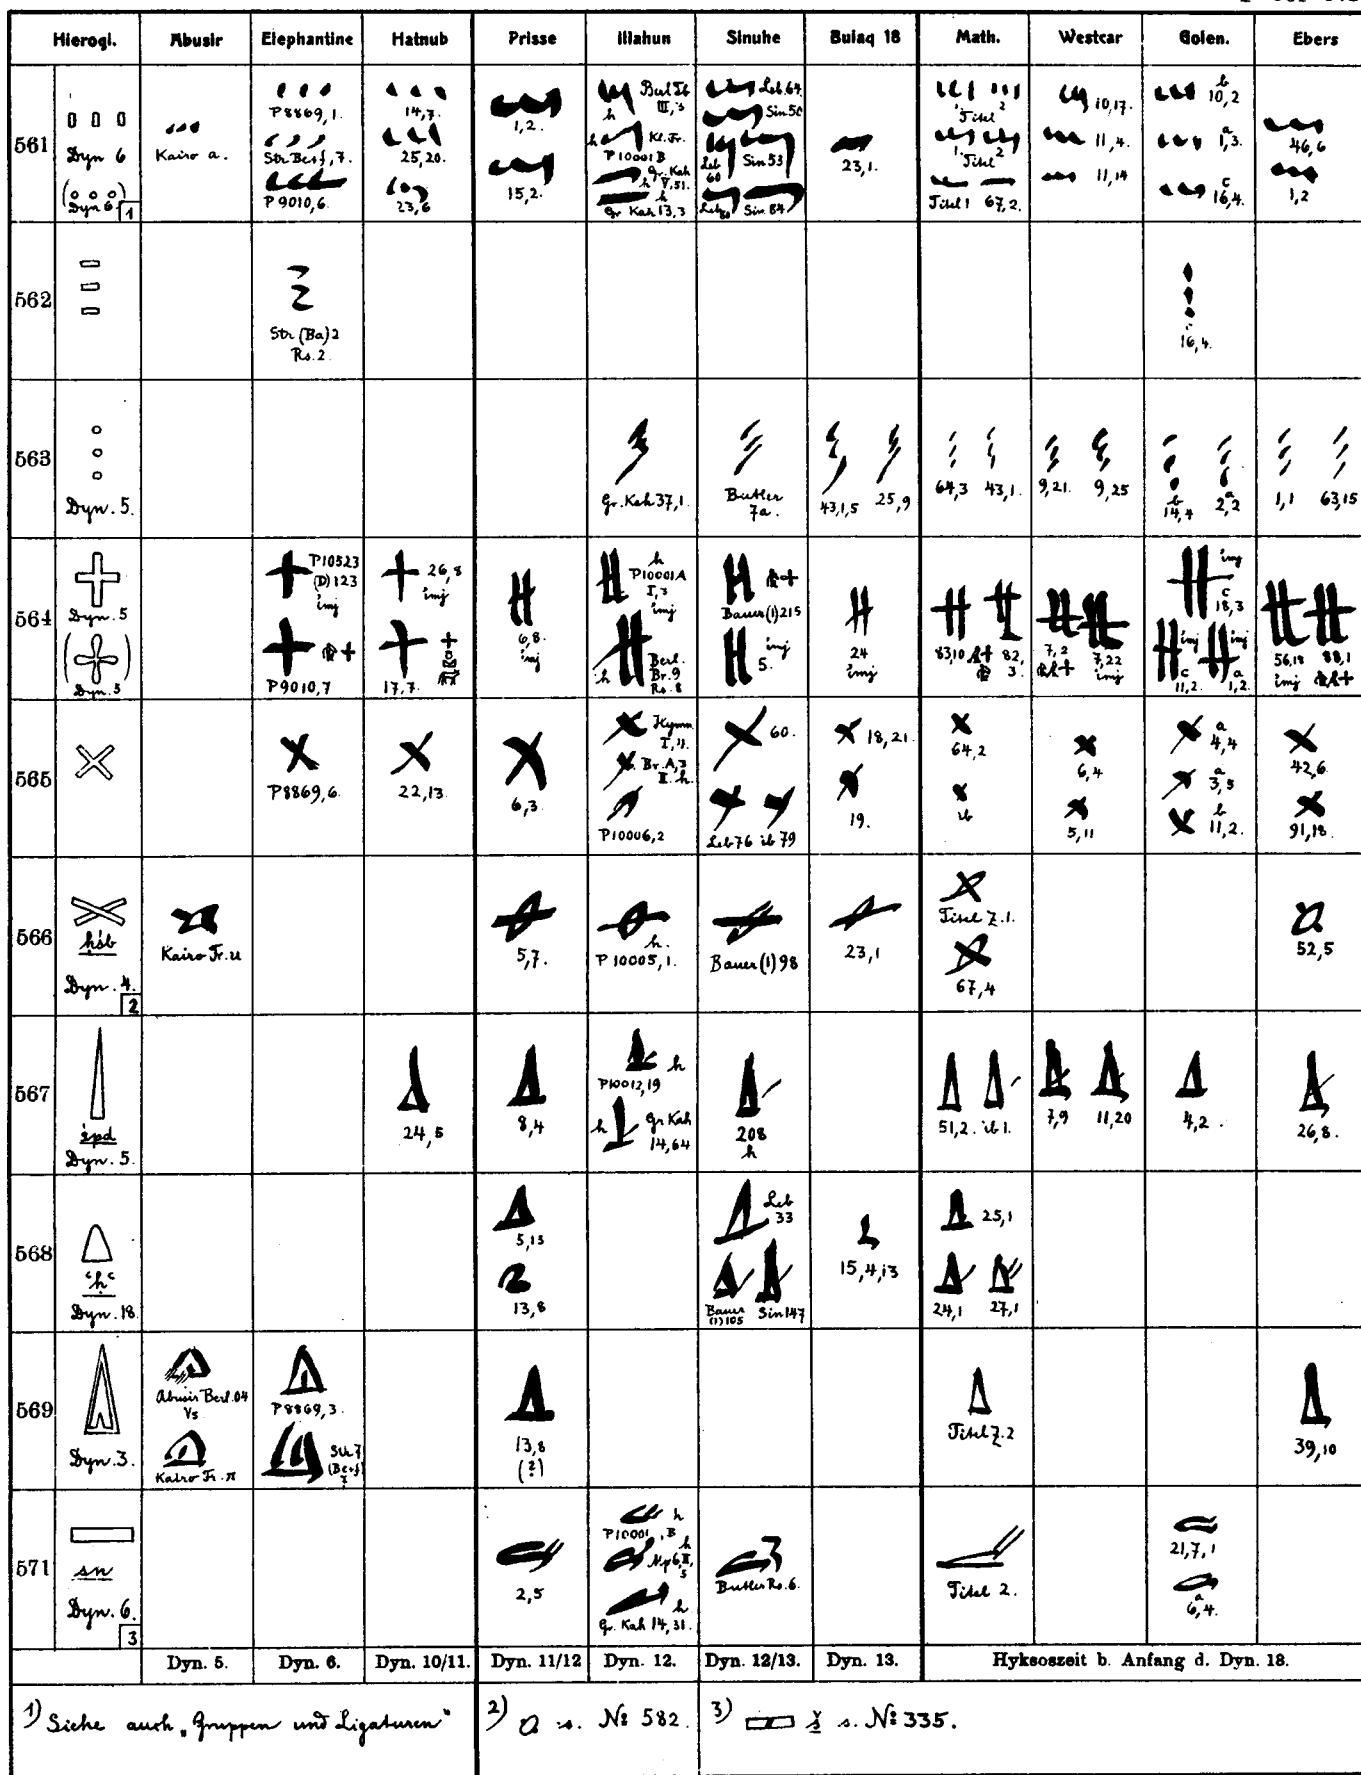 Hierogl. Abusir Elephantine Hatnub Prisse Illahun Sinuhe Bulaq 18 Math. Westcar Golen. Ebers
561
Dyn 6
Dyn 6
1
Kairo a.
P8869,1.
Str Berf, 7.
P9010,6.
14,7.
25,20.
23,6
1,2.
15,2.
h
h Kl. Fr.
P10001B
Gr. Kah
h V,51.
h
Gr Kah 13,3
Leb. 64.
Sin 50
Leb 60
Sin 53
Sin. 84
23,1.
1. Titel 2
1. Titel 2
Titel 1 67,2.
10,17.
11,4.
11,14
b 10,2
a 1,3.
c 16,4.
46,6
1,2
562
Str (Ba) 2
Rs. 2.
c
16,4.
563
Dyn. 5.
Gr. Kah 37,1.
Butler
7a.
43,1,5 25,9
64,3 43,1.
9,21. 9,25
b 14,4
a 2,2
1,1 63,15
564
Dyn. 5
Dyn. 5
P10523
(D) 123
imj
P9010,7
26,8
imj
17,7.
6,8.
imj
h
P10001A
I,3
imj
h
Berl.
Br. 9
Rs. 8
Bauer (1) 215
imj
5.
24
imj
83,10 82,
3.
7,2 7,22
imj
imj
c
18,3
imj
c
11,2.
imj
a
1,2.
56,18 88,1
imj
565
P8869,6.
22,13.
6,3.
Hymn
I,11.
Br. A,3
II. h.
P10006,2
60.
Leb 76 ib 79
18,21.
19.
64,2
ib
6,4
5,11
a
4,4
a
3,5
b
11,2.
42,6.
91,18.
566
ḥsb
Dyn. 4.
2
Kairo Fr. u
5,7.
h.
P10005,1.
Bauer (1) 98
23,1
Titel Z. 1.
67,4
52,5
567
śpd
Dyn. 5.
24,5
8,4
h
P10012,19
h
Gr Kah
14,64
208
h
51,2. ib 1.
7,9 11,20
4,2.
26,8.
568
ꜥḥꜥ
Dyn. 18.
5,13
13,8
Leb
33
Bauer
(1) 105
Sin 147
15,4,13
25,1
24,1 27,1
569
Dyn. 3.
Abusir Berl. 04
Vs
Kairo Fr. π
P8869,3.
Str 7
(Berf)
7
13,8
(?)
Titel Z. 2
39,10
571
sn
Dyn. 6.
3
2,5
h
P10001, B
h
Gr. Kah 14,31.
h
Butler Rs. 6.
Titel 2.
21,7,1
a
6,4.
Dyn. 5. Dyn. 6. Dyn. 10/11. Dyn. 11/12 Dyn. 12. Dyn. 12/13. Dyn. 13. Hyksoszeit b. Anfang d. Dyn. 18.
1) Siehe auch „Gruppen und Ligaturen“ 2) s. № 582. 3) š s. № 335.